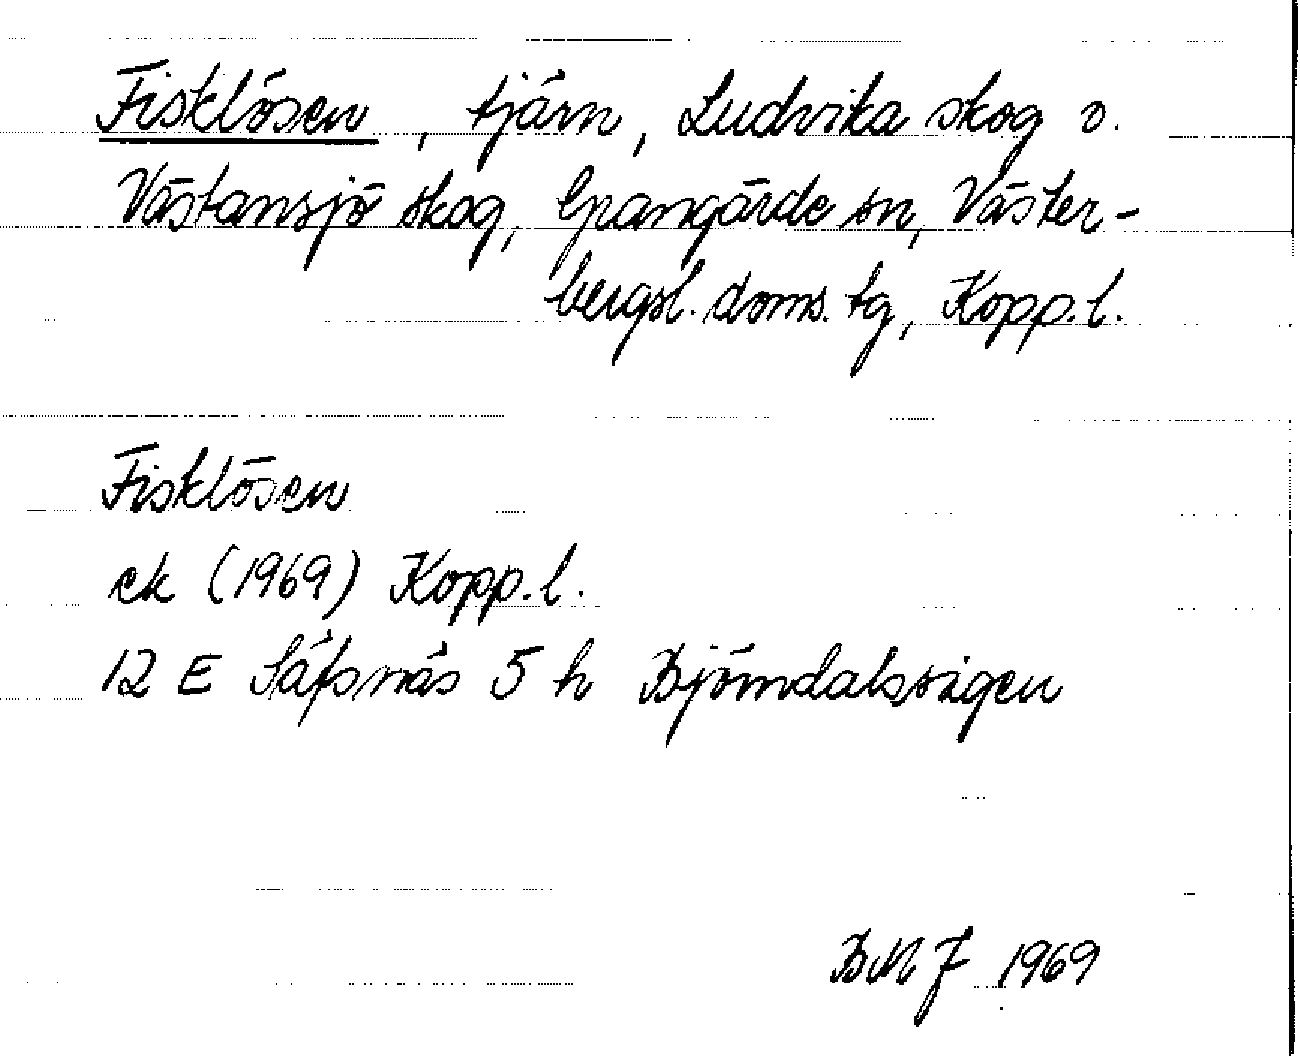 Fisklösen, tjärn, Ludvika skog o.
Västansjö skog, Grangärde sn, Väster-
bergsl. doms. tg, Kopp. l.
Fisklösen
ek (1969) Kopp. l.
12 E Säfsnäs 5 h Björndalsvägen
BMJ 1969